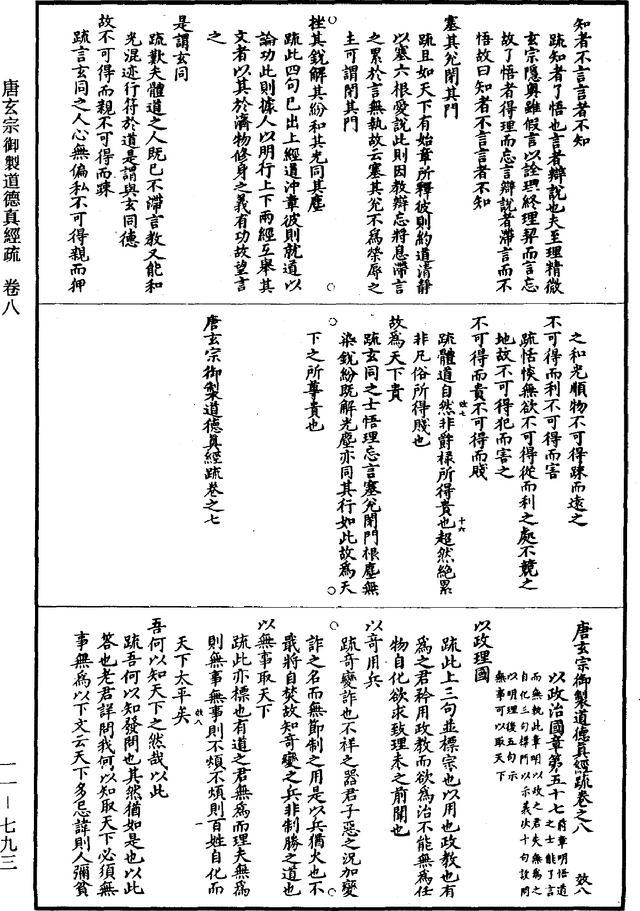 知者不言言者不知
疏知者了悟也言者辯說也夫至理精微
玄宗隱奧雖假言以詮理終理契而言忘
故了悟者得理而忘言辯說者滯言而不
悟故曰知者不言言者不知
塞其兊閉其門
疏且如天下有始章所釋彼則約道清靜
以塞六根愛說此則因教辯忘將息滯言
之累於言無執故云塞其兊不為榮辱之
主可謂閉其門
挫其銳解其紛和其光同其塵
疏此四句已出上經道沖章彼則就道以
論功此則據人以明行上下兩經互舉其
文者以其於濟物修身之義有功故望言
之
是謂玄同
疏歎夫體道之人既已不滯言教又能和
光混迹行符於道是謂與玄同德
故不可得而親不可得而踈
疏言玄同之人心無偏私不可得親而狎
之和光順物不可得踈而遠之
不可得而利不可得而害
疏恬惔無欲不可得從而利之處不競之
地故不可得犯而害之
不可得而貴不可得而賤
疏體道自然非爵祿所得貴也超然絶累
非凡俗所得賤也
故為天下貴
疏玄同之士悟理忘言塞兊閉門根塵無
染銳紛既解光塵亦同其行如此故為天
下之所尊貴也
唐玄宗御製道德真經疏卷之七
唐玄宗御製道德真經疏卷之八 效八
以政治國章第五十七 前章明悟道之士能了言
而無執此章明以政之君失無為之
自化三句標門以示義次十句設問
以明理後五句示
無事可以取天下
以政理國
疏此上三句並標宗也以用也政教也有
為之君矜用政教而欲為治不能無為任
物自化欲求致理未之前聞也
以奇用兵
疏奇變詐也不祥之器君子惡之況加變
詐之名而無節制之用是以兵猶火也不
戢將自焚故知奇變之兵非制勝之道也
以無事取天下
疏此亦標也有道之君無為而理夫無為
則無事無事則不煩不煩則百姓自化而
天下太平矣
吾何以知天下之然哉以此
疏吾何以知發問也其然猶如是也以此
答也老君詳問我何以知取天下必須無
事無為以下文云天下多忌諱則人彌貧
唐玄宗御製道德真經疏 卷八
一一－七九三